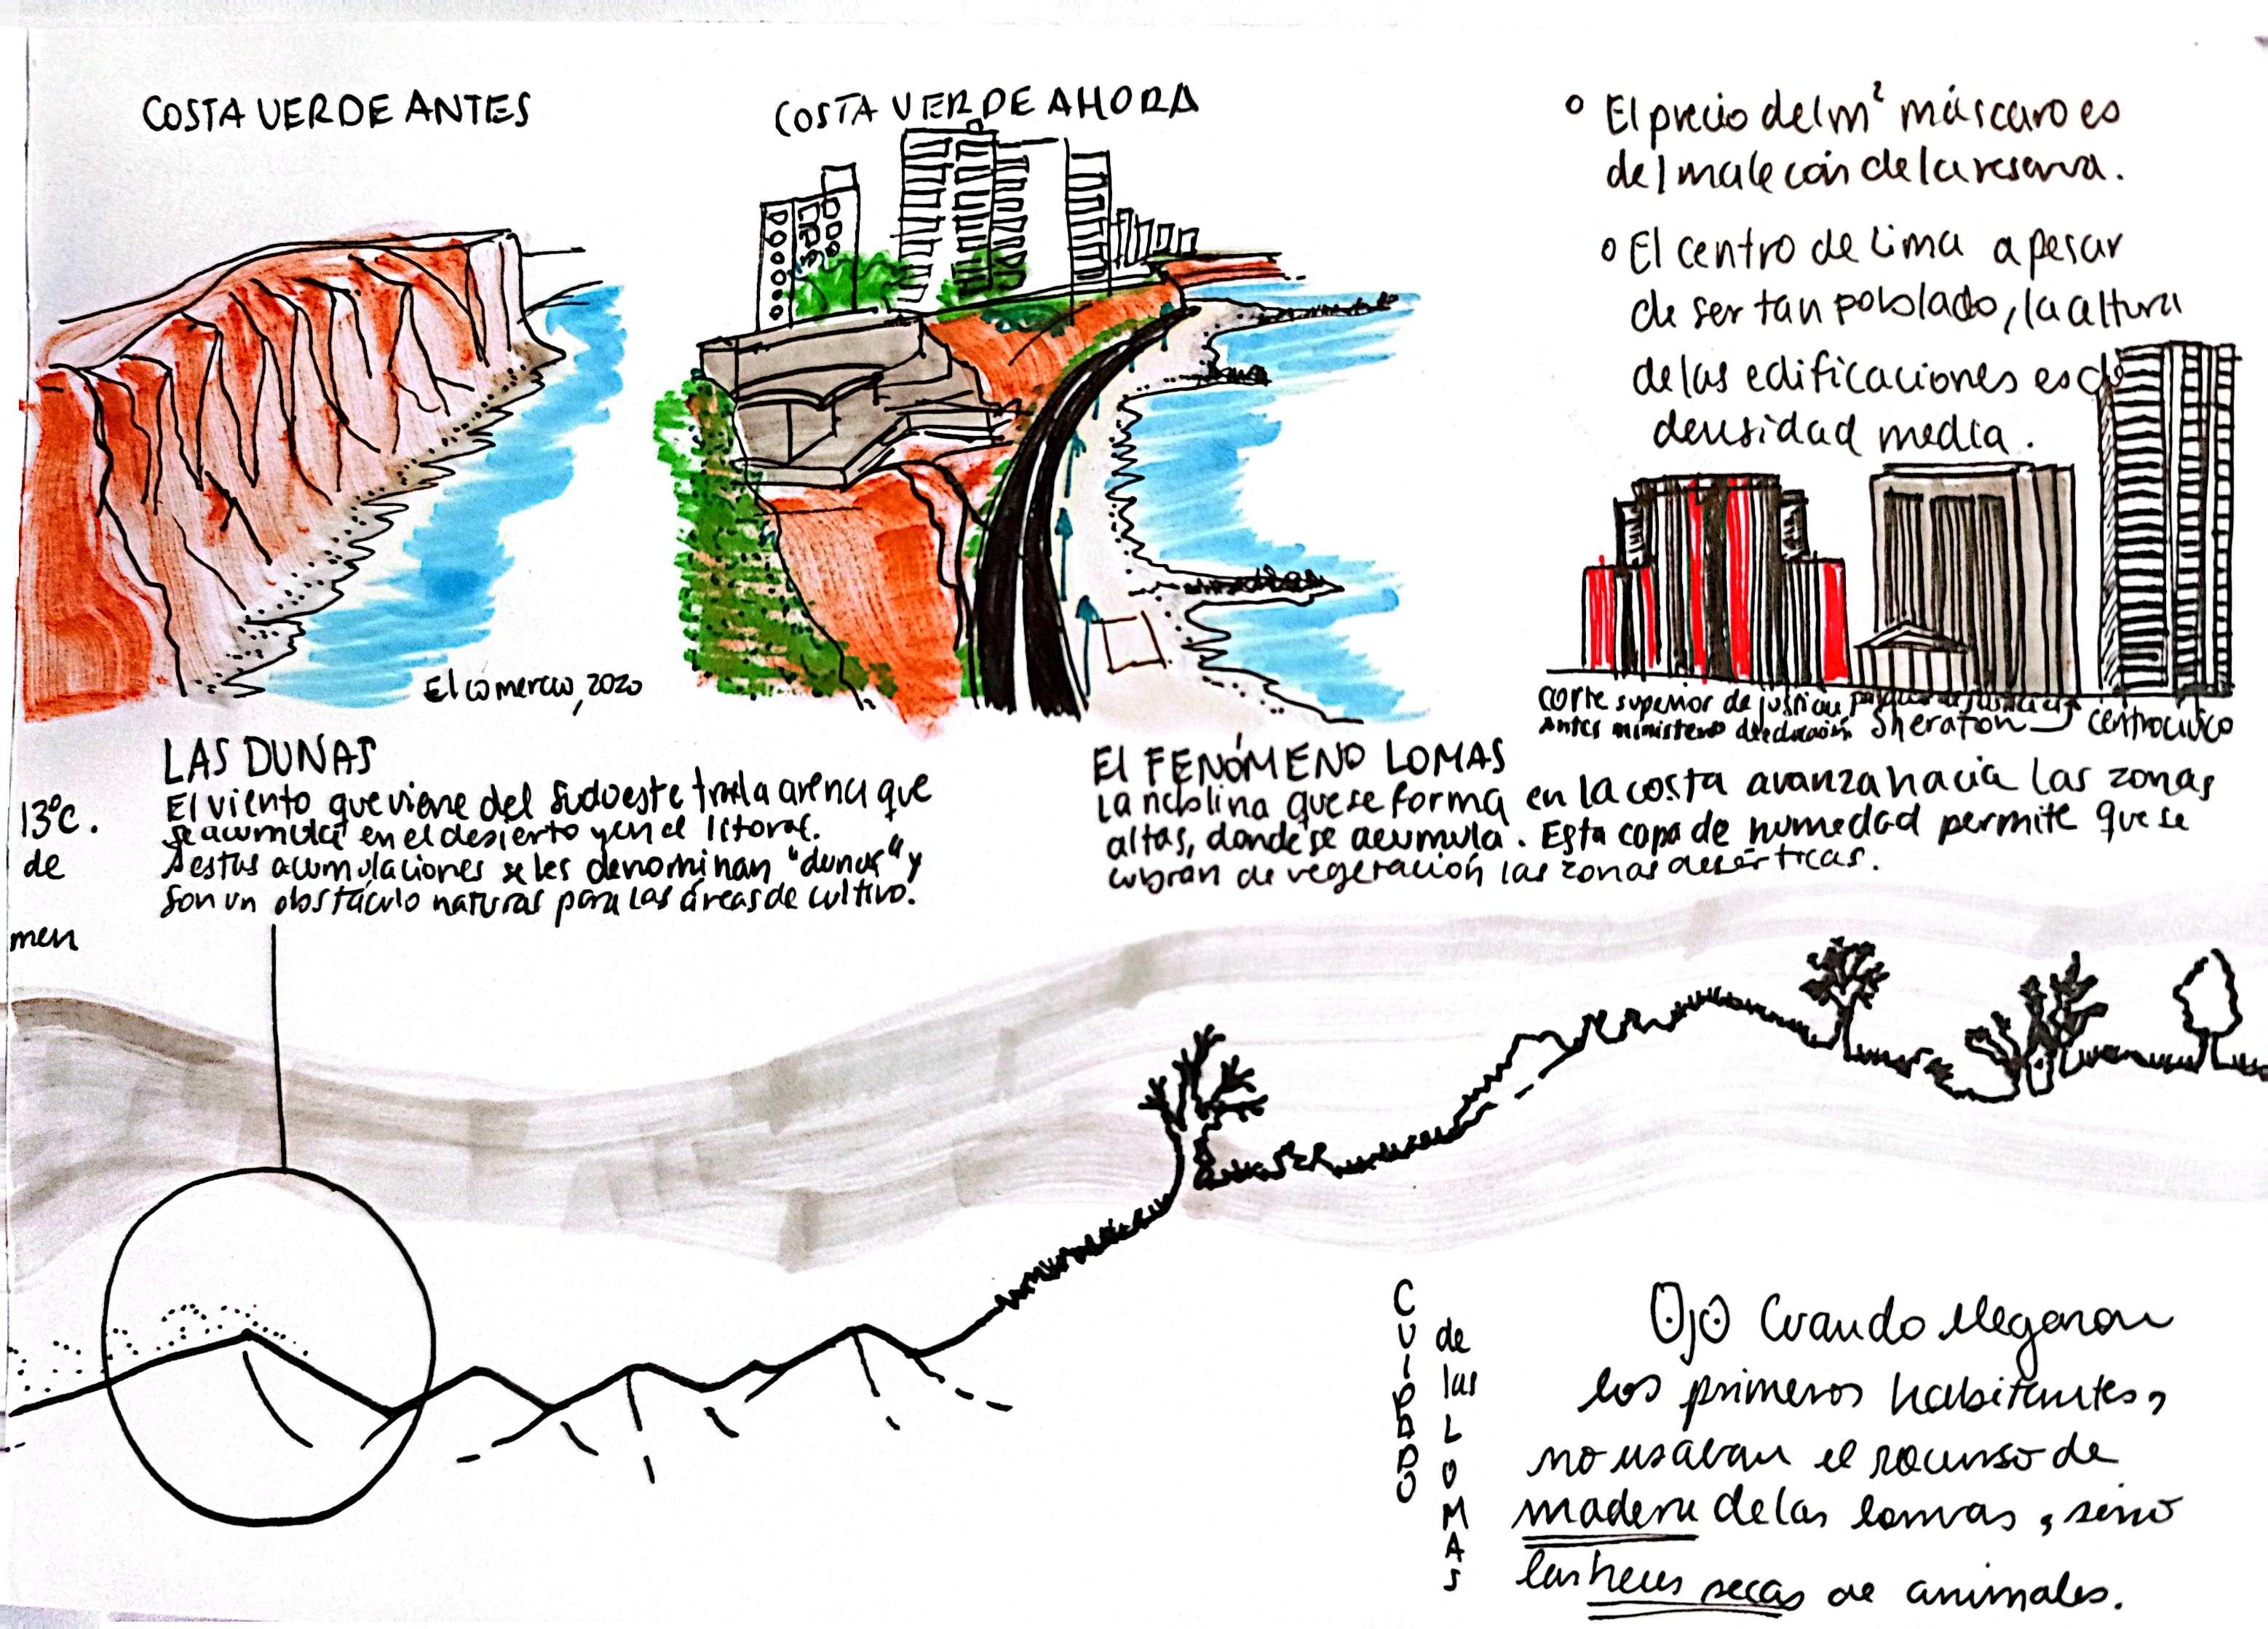 COSTA VERDE ANTES
COSTA VERDE AHORA
El Comercio, 2020
o El precio del m² más caro es
del malecón de la reserva.
o El centro de Lima a pesar
de ser tan poblado, la altura
de las edificaciones es de
densidad media.
corte superior de justicia
antes ministerio de educación
palacio de justicia
Sheraton
centro cívico
13°C.
de
men
LAS DUNAS
El viento que viene del sudoeste trae la arena que
se acumula en el desierto y en el litoral.
A estas acumulaciones se les denominan "dunas" y
son un obstáculo natural para las áreas de cultivo.
El FENÓMENO LOMAS
La neblina que se forma en la costa avanza hacia las zonas
altas, donde se acumula. Esta capa de humedad permite que se
cubran de vegetación las zonas desérticas.
CUIDADO
de las LOMAS
Ojo Cuando llegaron
los primeros habitantes,
no usaban el recurso de
madera de las lomas, sino
las heces secas de animales.